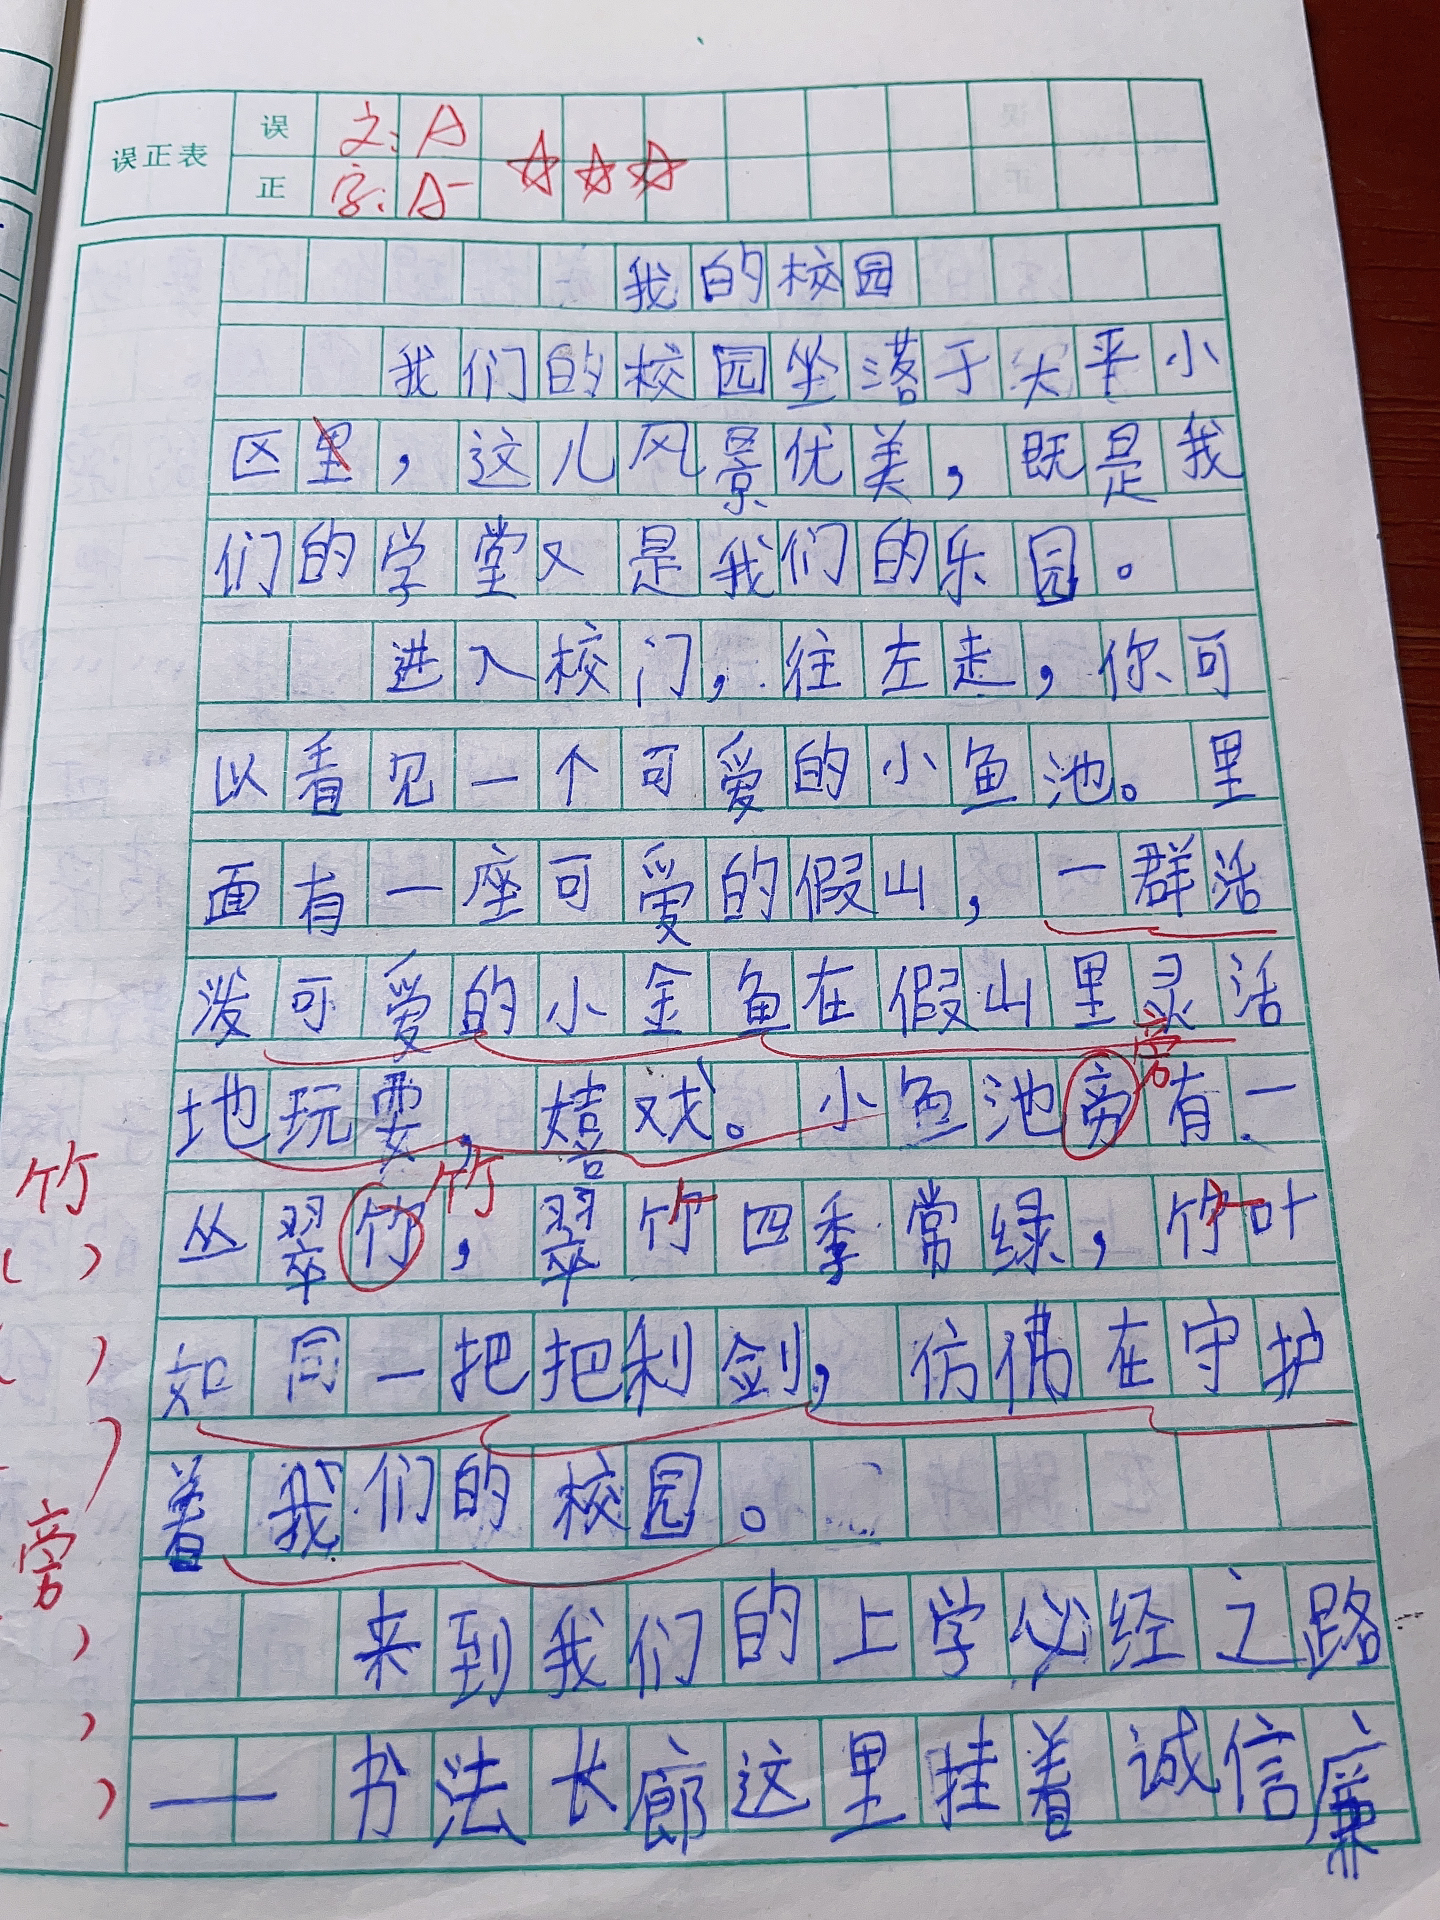 误正表
误 文:A
正 字:A-
我的校园
我们的校园坐落于太平小
区里，这儿风景优美，既是我
们的学堂又是我们的乐园。
进入校门，往左走，你可
以看见一个可爱的小鱼池。里
面有一座可爱的假山，一群活
泼可爱的小金鱼在假山里灵活
旁
地玩耍，嬉戏。小鱼池旁有一
竹
竹
丛翠竹，翠竹四季常绿，竹叶
( )
如同一把把利剑，仿佛在守护
( )
着我们的校园。
旁
来到我们的上学必经之路
——书法长廊这里挂着诚信廉